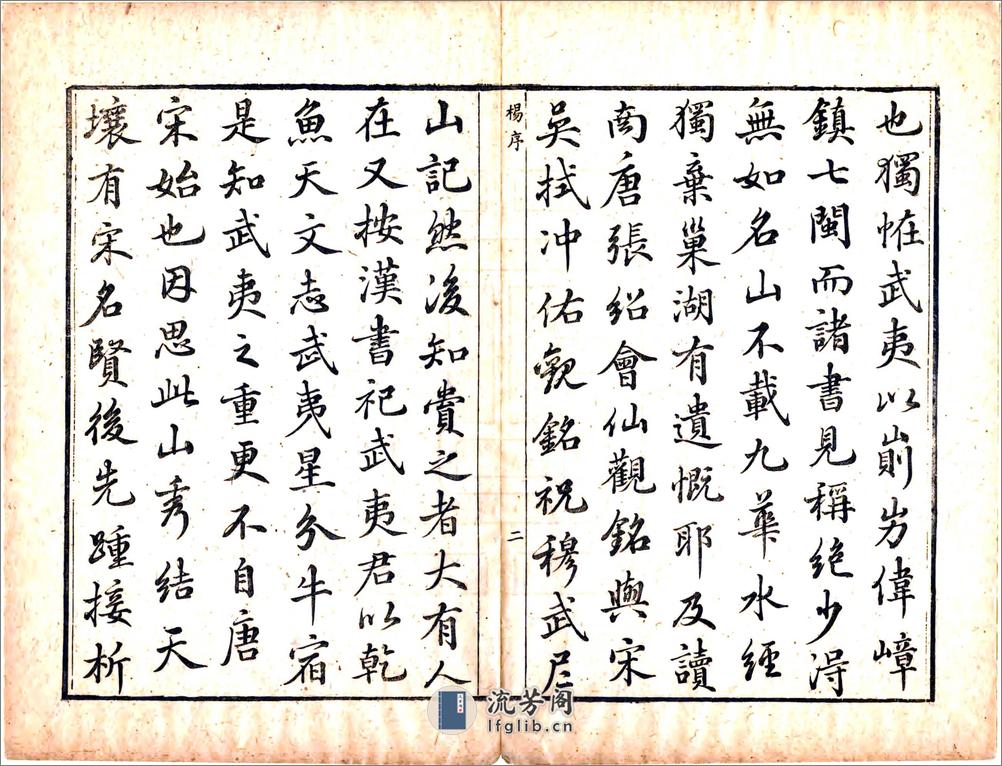 也獨惟武夷以崱屴偉嶂
鎮七閩而諸書見稱絶少淂
無如名山不載九華水經
獨棄巢湖有遺慨耶及讀
南唐張紹會仙觀銘與宋
吳拭冲佑觀銘祝穆武夷
楊序
二
山記然後知貴之者大有人
在又按漢書祀武夷君以乾
魚天文志武夷星分牛宿
是知武夷之重更不自唐
宋始也因思此山秀結天
壤有宋名賢後先踵接析
流芳阁
lfglib.cn